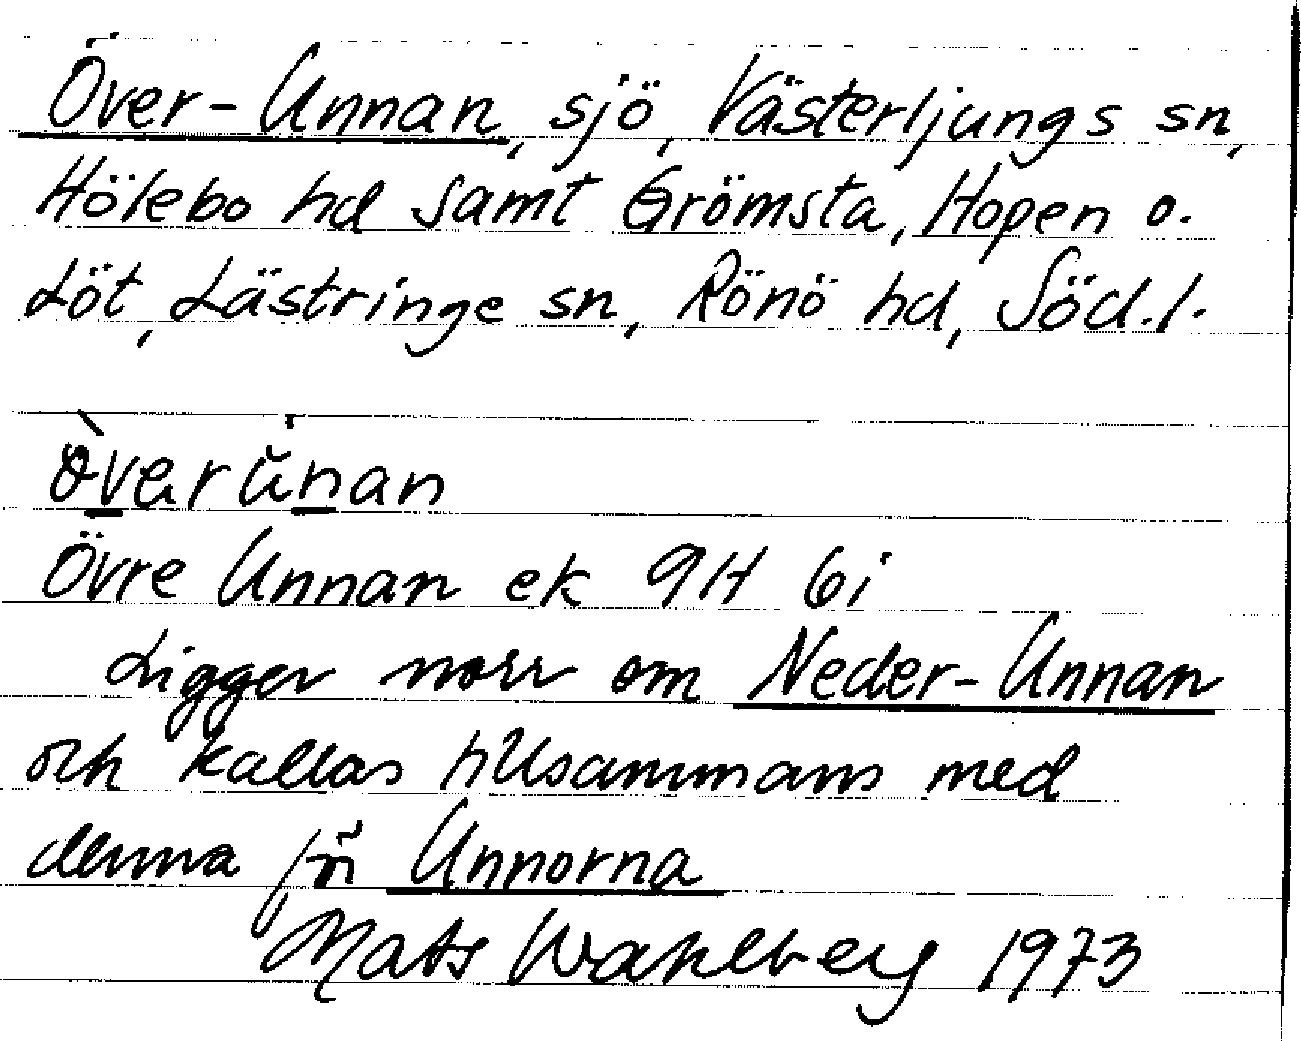 Över-Unnan, sjö, Västerljungs sn,
Hölebo hd samt Grömsta, Hopen o.
Löt, Lästringe sn, Rönö hd, Söd.l.
Övre Unnan ek 9H 6i
Ligger norr om Neder-Unnan
och kallas tillsammans med
denna för Unnorna
Mats Wahlberg 1973